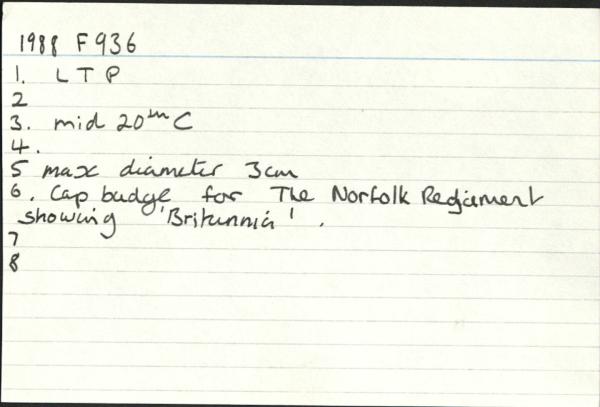 1988 F936
1. L T P
2
3. mid 20th C
4.
5 max diameter 3cm
6. Cap badge for The Norfolk Regiment
showing 'Britannia'.
7
8